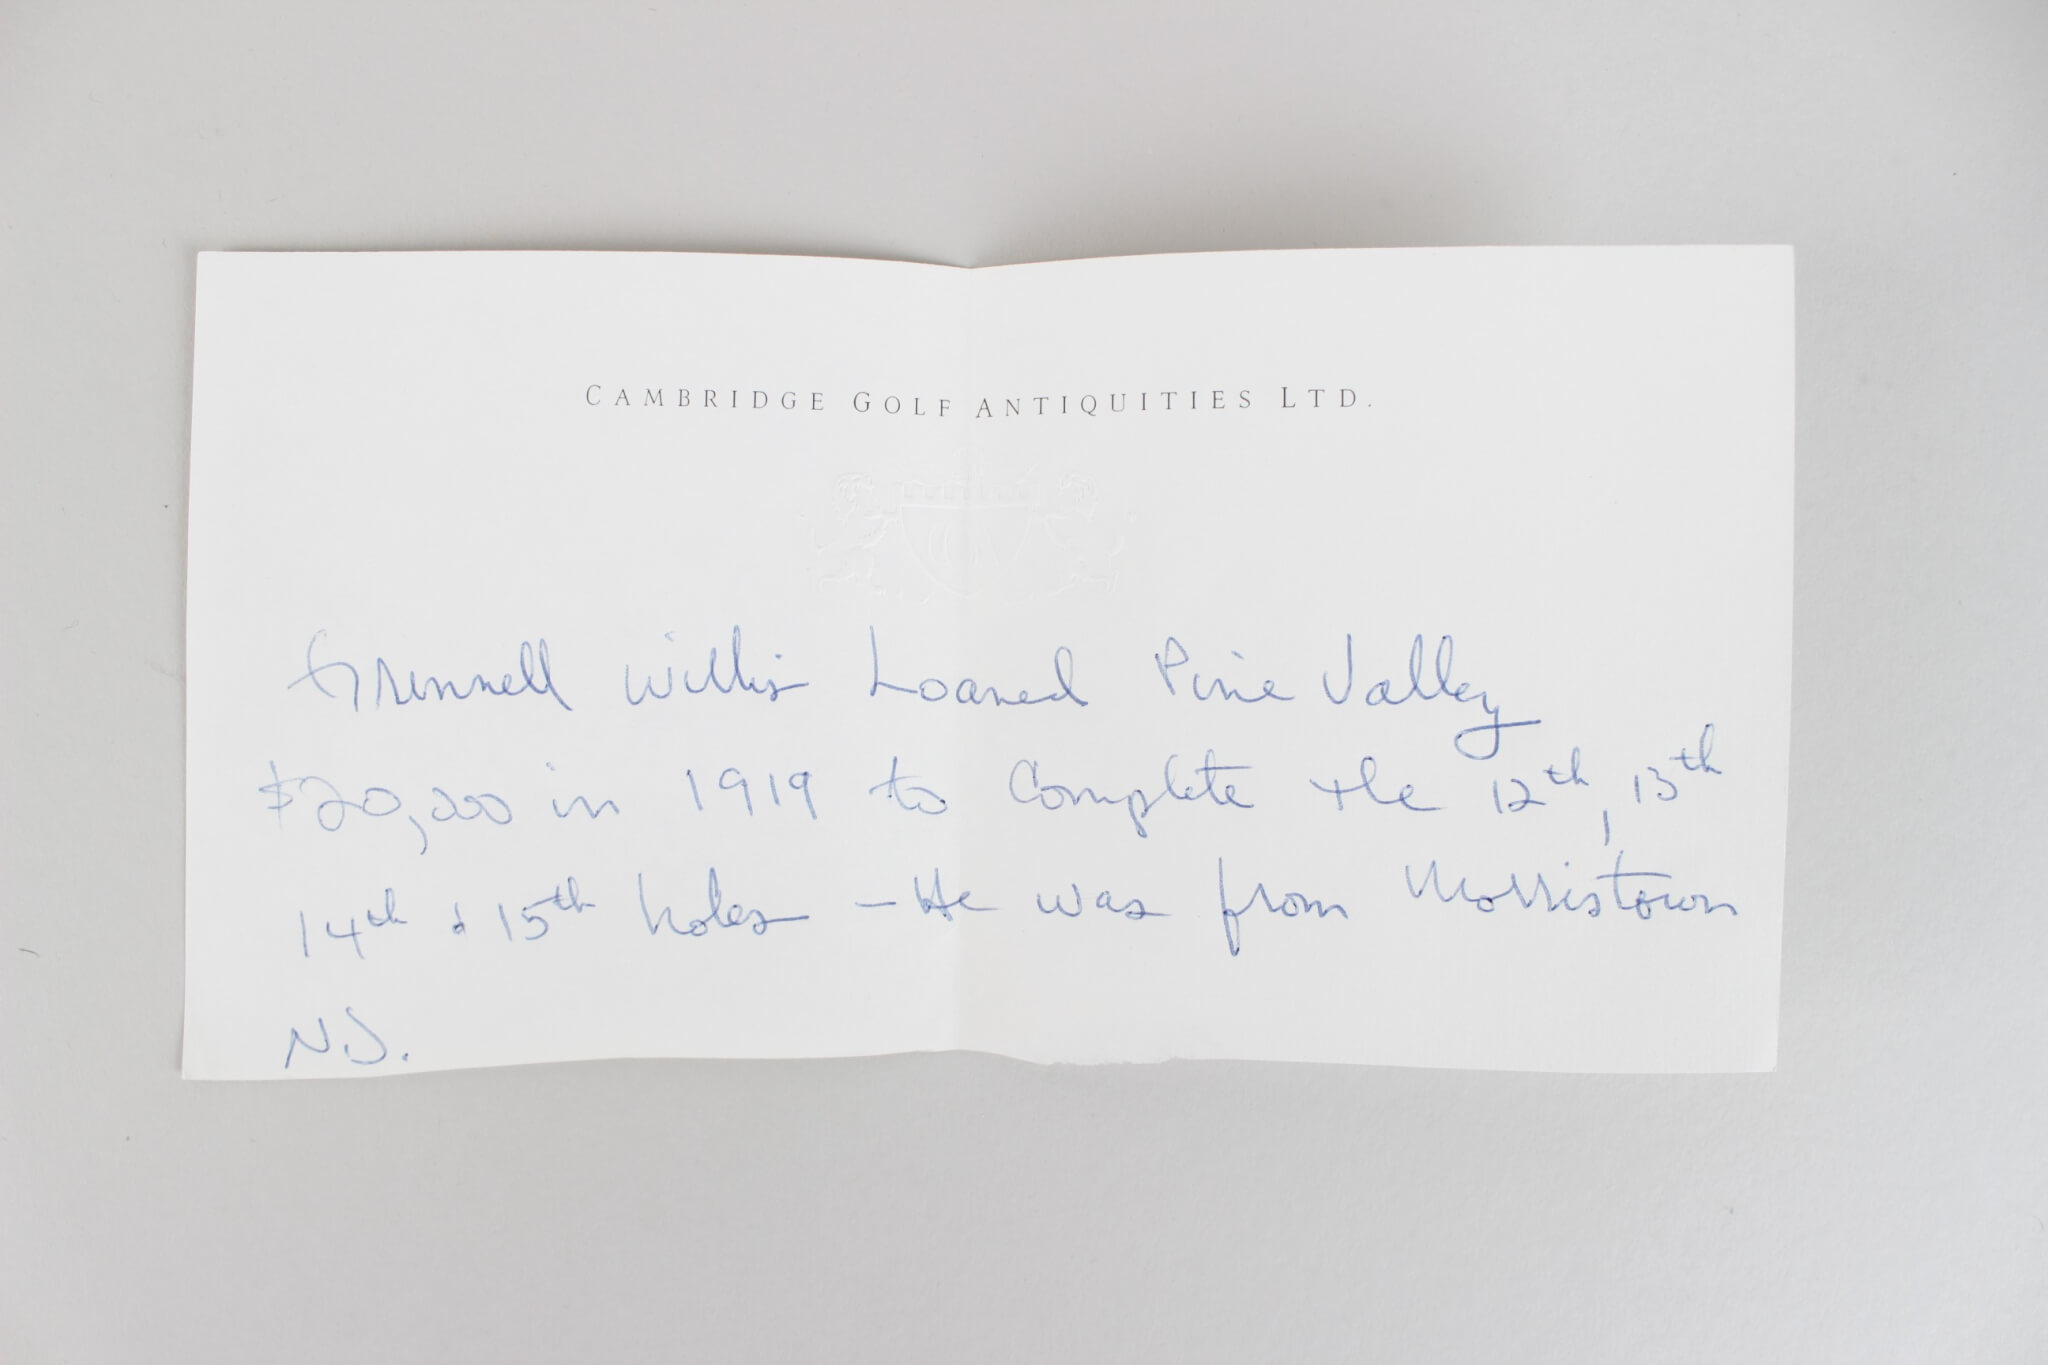 CAMBRIDGE GOLF ANTIQUITIES LTD.
Grinnell Willis Loaned Pine Valley
$20,000 in 1919 to Complete the 12th, 13th
14th & 15th holes – He was from Morristown
N.J.